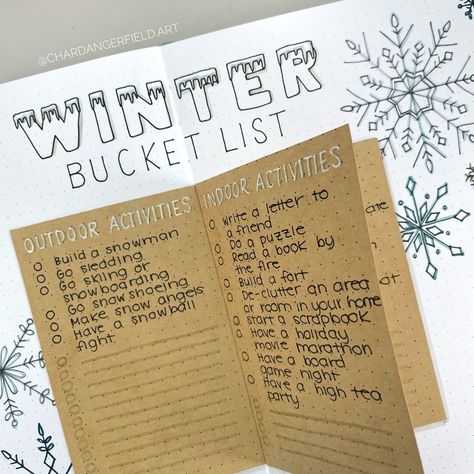 @CHARDANGERFIELD.ART
WINTER
BUCKET LIST
OUTDOOR ACTIVITIES
Build a snowman
Go sledding
Go skiing or
snowboarding
Go snow shoeing
Make snow angels
Have a snowball
fight
INDOOR ACTIVITIES
Write a letter to
a friend
Do a puzzle
Read a book by
the fire
Build a fort
De-clutter an area
or room in your home
Start a scrapbook
Have a holiday
movie marathon
Have a board
game night
Have a high tea
party
ate
at